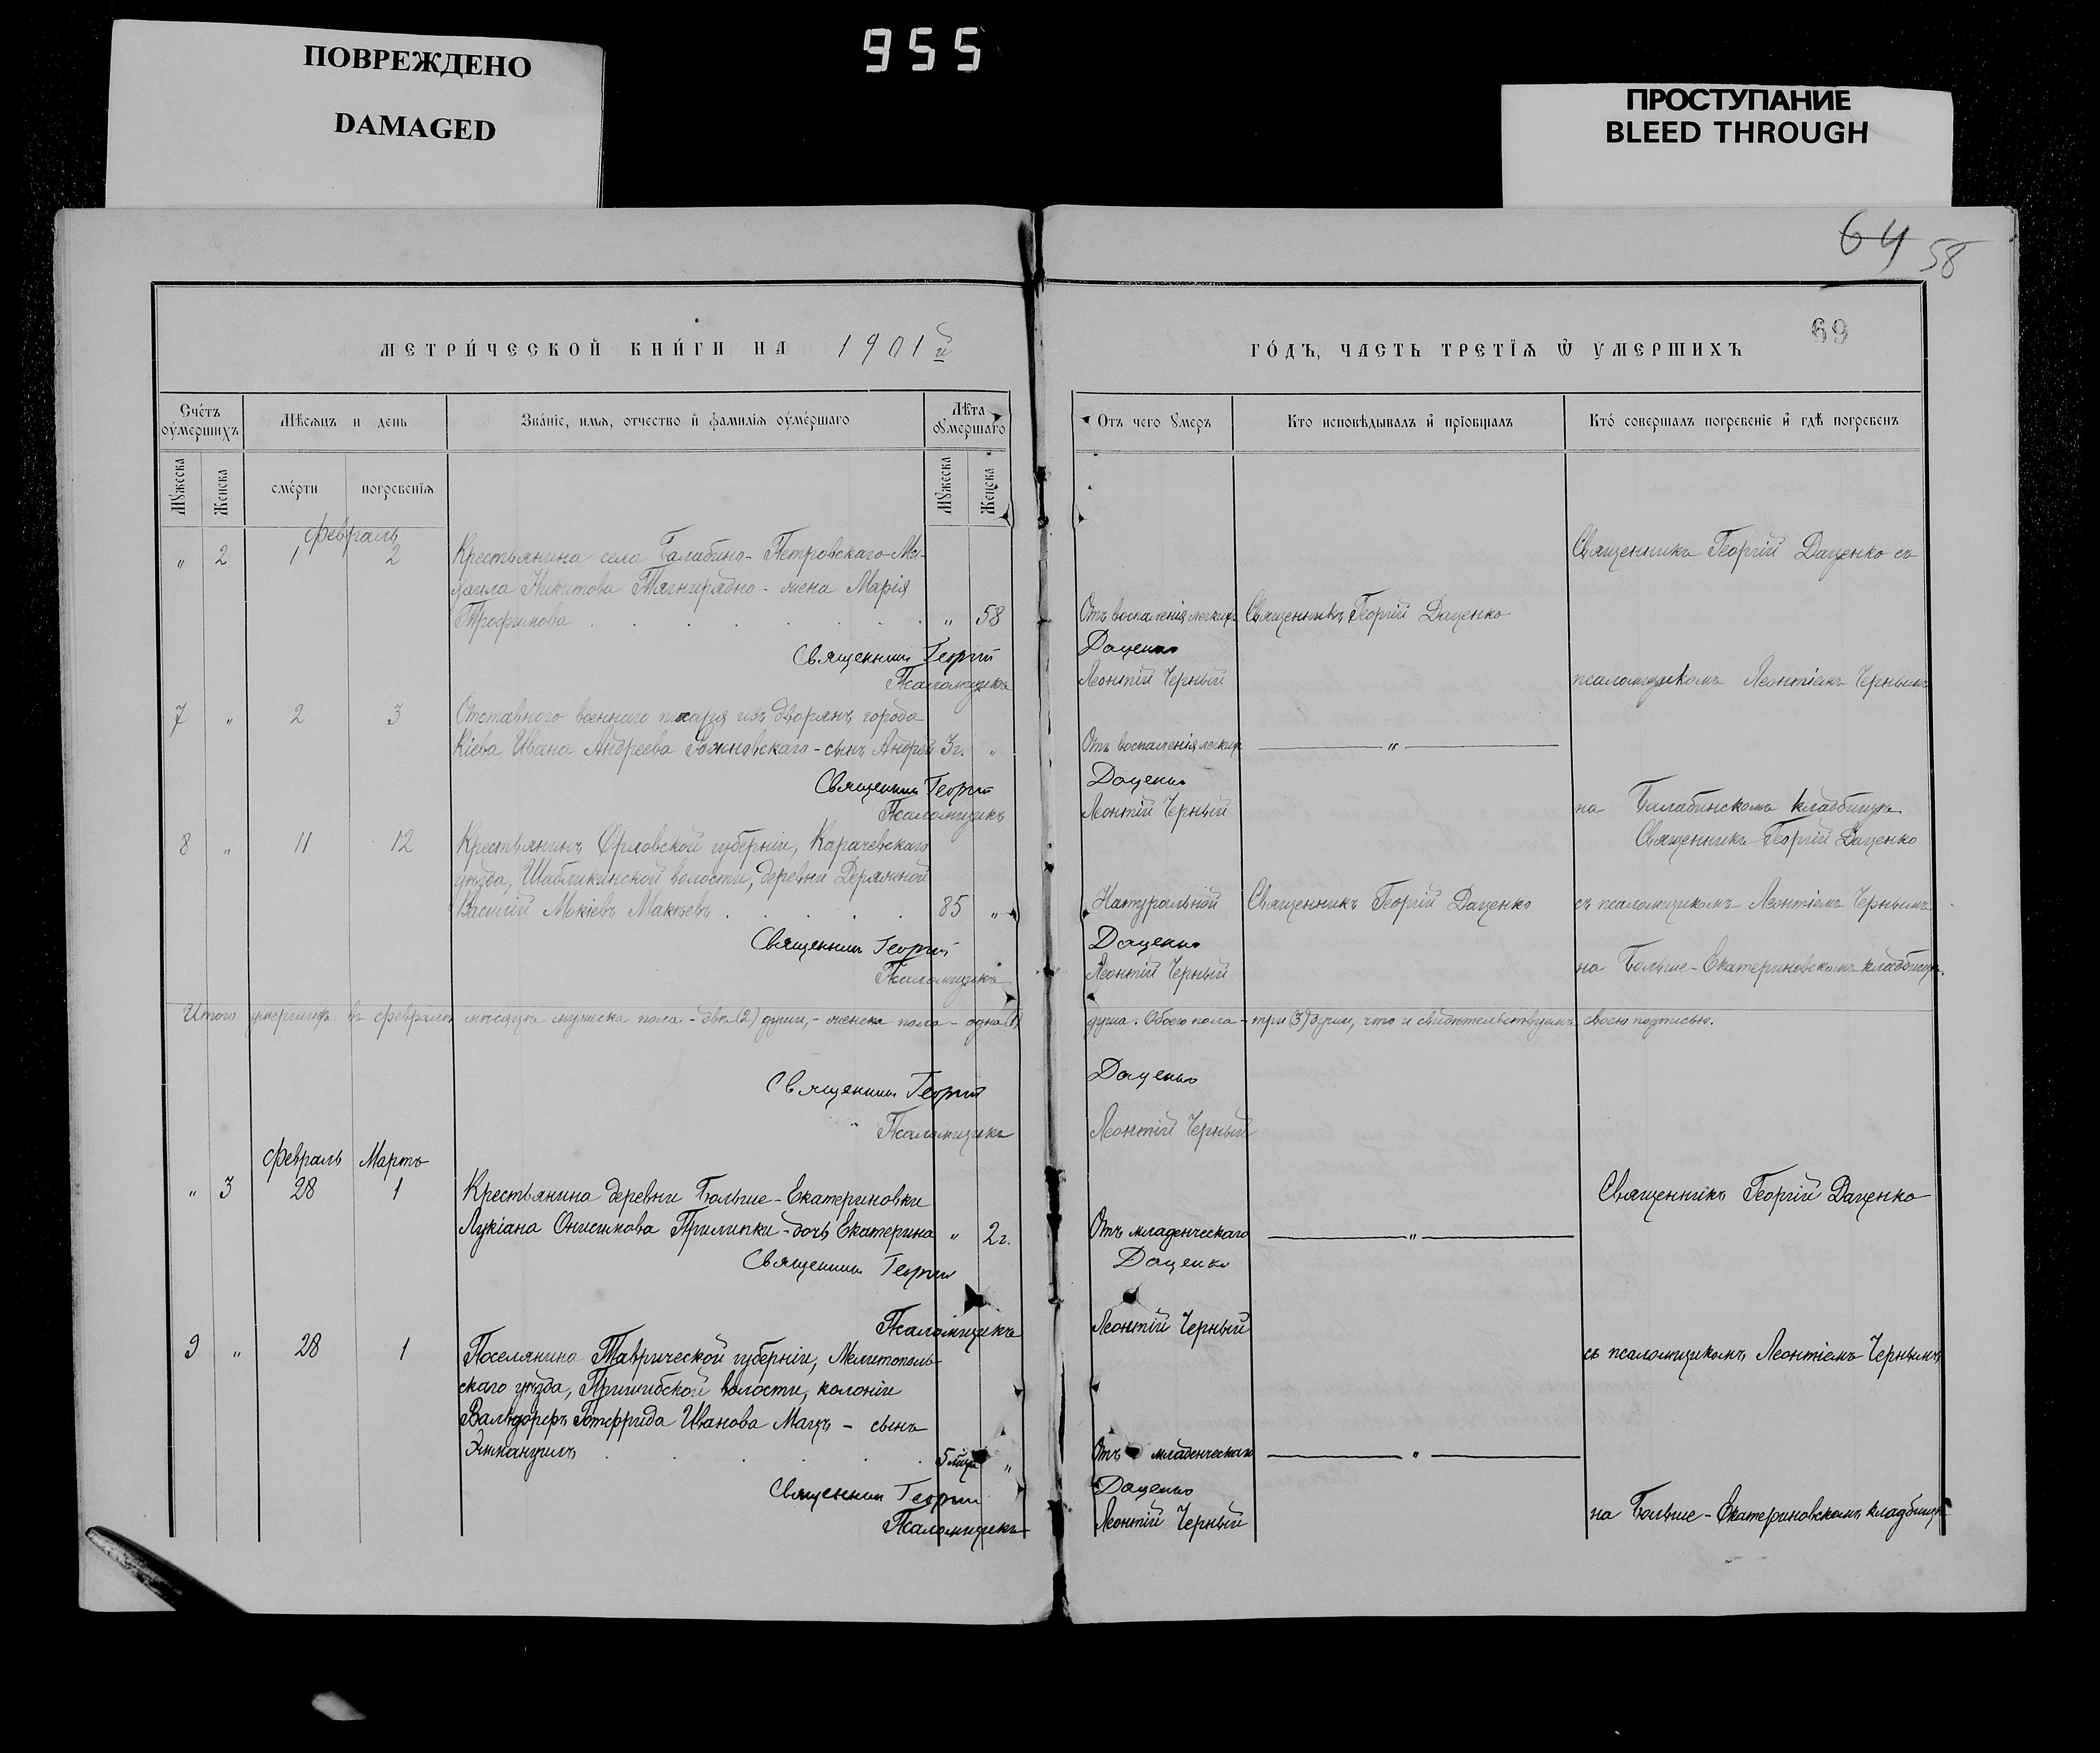 ПОВРЕЖДЕНО
DAMAGED
955
ПРОСТУПАНИЕ
BLEED THROUGH
64 58
69
МЕТРИ́ЧЕСКОЙ КНИ́ГИ НА 1901й
ГО́ДЪ, ЧАСТЬ ТРЕТІѦ Ѿ УМЕРШИХЪ
Счетъ оумершихъ
Мѣсяцъ и день
Зва́ніе, имя, отчество и фамилія оуме́ршаго
Лѣта оумершаго
Отъ чего умеръ
Кто исповѣдывалъ и пріобщалъ
Кто́ совершалъ погребеніе и гдѣ погребенъ
Мужеска
Женска
сме́рти
погребенія
Мужеска
Женска
Февраль
" 2 1 2 Крестьянина села Балабино-Петровскаго Ми-
хаила Никитова Тягнирядно - жена Марія
Трофимова " 58
Отъ воспаленія легкихъ
Священникъ Георгій Даценко
Священникъ Георгій Даценко съ
Священникъ Георгій Даценко
Псаломщикъ Леонтій Черный
псаломщикомъ Леонтіемъ Чернымъ
7 " 2 3 Отставного военнаго писаря изъ дворянъ города
Кіева Ивана Андреева - сынъ Андрей 3г. "
Отъ воспаленія легкихъ "
Священникъ Георгій Даценко
Псаломщикъ Леонтій Черный
на Балабинскомъ кладбищѣ
Священникъ Георгій Даценко
8 " 11 12 Крестьянинъ Орловской губерніи, Карачевскаго
уѣзда, Шаблыкинской волости, деревни
Василій Мокіевъ 85 "
Натуральной
Священникъ Георгій Даценко
съ псаломщикомъ Леонтіемъ Чернымъ
Священникъ Георгій Даценко
Псаломщикъ Леонтій Черный
на Больше-Екатериновскомъ кладбищѣ
Итого умершихъ въ февралѣ мѣсяцѣ мужеска пола - двѣ (2) души, - женска пола - одна (1) душа. Обоего пола - три (3) души, что и свидѣтельствуемъ своею подписью.
Священникъ Георгій Даценко
Псаломщикъ Леонтій Черный
Февраль Мартъ
" 3 28 1 Крестьянина деревни Больше-Екатериновки
Лукіана Онисимова Прилипки - дочь Екатерина " 2г.
Отъ младенческаго "
Священникъ Георгій Даценко
Священникъ Георгій Даценко
Псаломщикъ Леонтій Черный
9 " 28 1 Поселянина Таврической губерніи, Мелитополь-
скаго уѣзда, Пришибской волости, колоніи
Вальдорфъ Готфрида Иванова - сынъ
Эммануилъ 5 "
съ псаломщикомъ Леонтіемъ Чернымъ
Отъ младенческаго "
Священникъ Георгій Даценко
Псаломщикъ Леонтій Черный
на Больше-Екатериновскомъ кладбищѣ